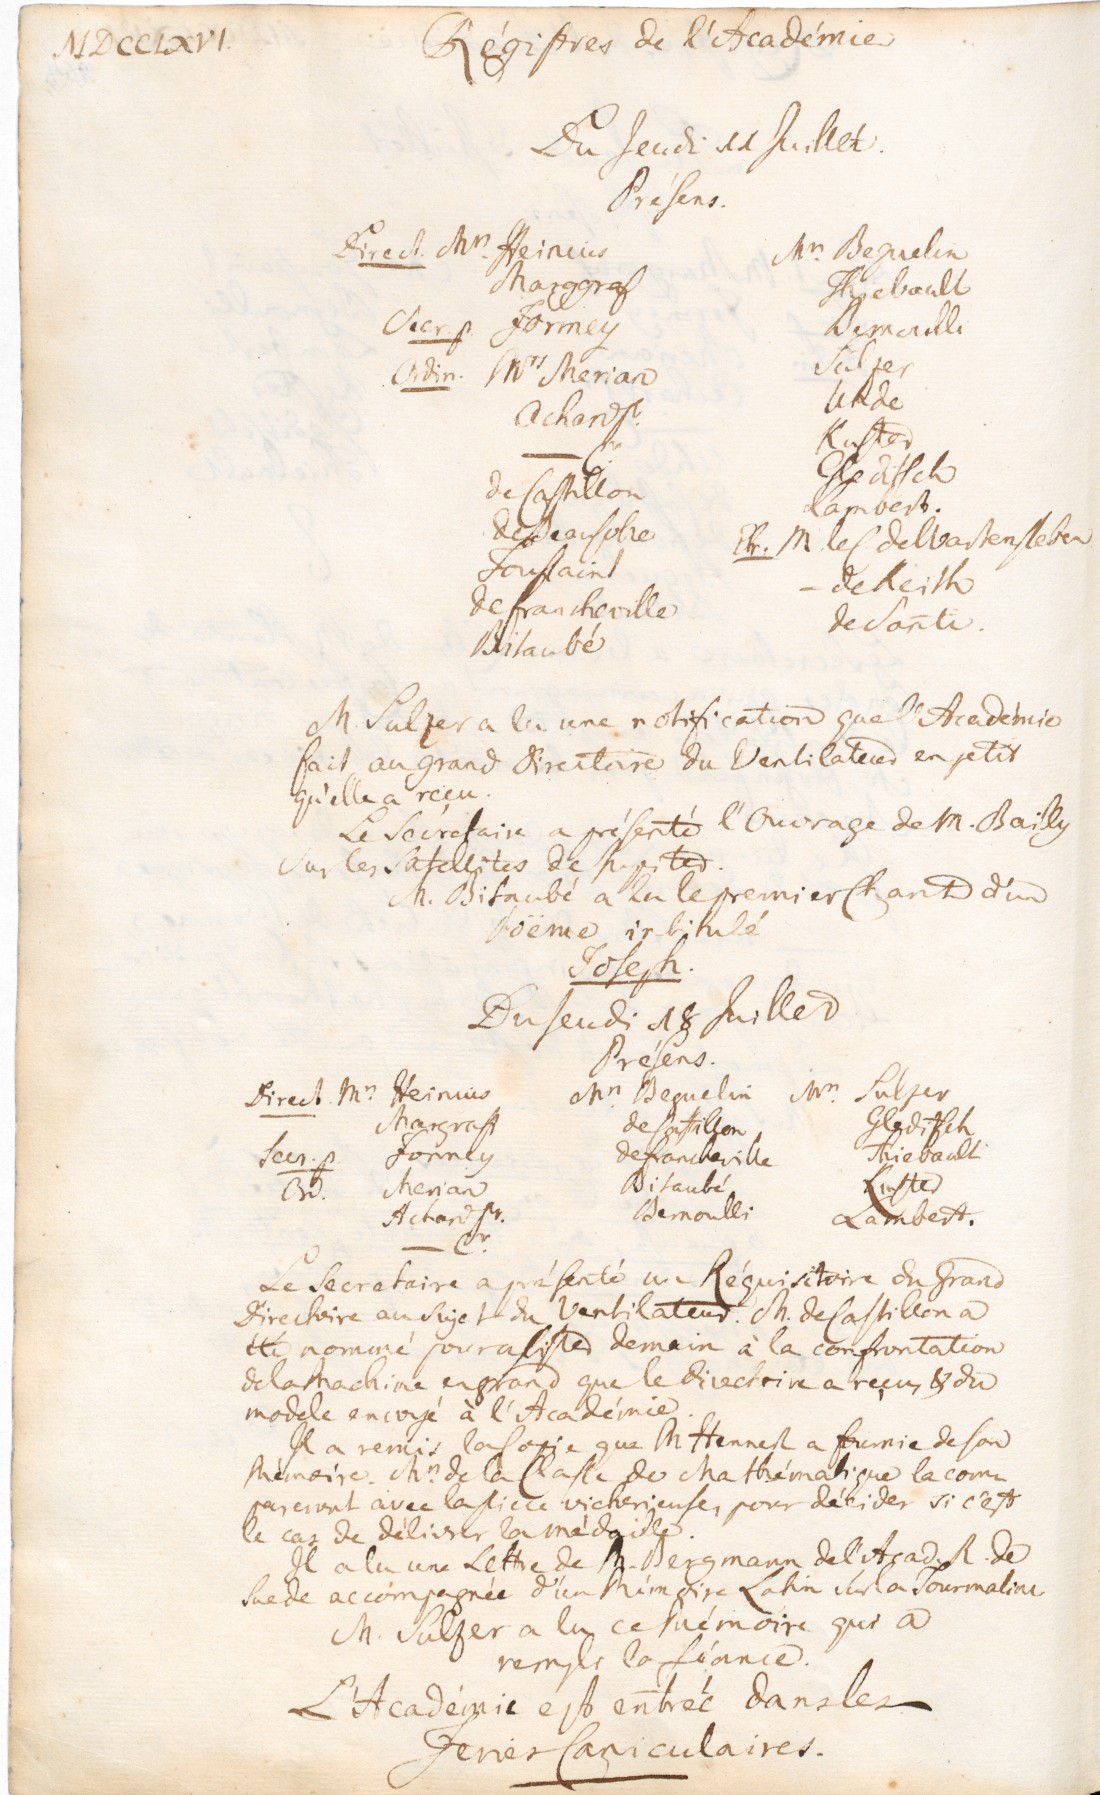 MDCCLXVI.
Régistres de l'Académie
Du Jeudi 11 Juillet.
Présens.
Direct. Mrs. Heinius
Marggraf
Secr. p. Formey
Ordin. Mrs Merian
Achard Sr.
— Cr.
de Castillon
de Beausobre
Toussaint
de Francheville
Bitaubé
Mrs Beguelin
Thiebault
Bernoulli
Sulzer
Uhde
Kuster
Gleditsch
Lambert.
Etr. M. le C. de Wartensleben
– de Keith
de Santi.
M. Sulzer a lu une notification que l'Académie
fait au grand Directoire du Ventilateur en petit
qu'elle a reçu.
Le Sécretaire a présenté l'Ouvrage de M. Bailly
sur les Satellites de Jupiter.
M. Bitaubé a lu le premier Chant d'un
Poëme intitulé
Joseph.
Du Jeudi 18 Juillet
Présens.
Direct. Mrs Heinius Mrs Beguelin Mrs. Sulzer
Margraff de Castillon Gleditsch
Secr. p. Formey de Francheville Thiebault
Ord. Merian Bitaubé Kuster
Achard Sr. Bernoulli Lambert.
— Cr.
Le Secretaire a présenté un Réquisitoire du Grand
Directoire au sujet du Ventilateur. M. de Castillon a
été nommé pour assister demain à la confrontation
de la Machine en grand que le Directoire a reçu, & du
modele envoyé à l'Académie.
Il a remis la Copie que M. Hennert a fournie de son
Mémoire. Mrs de la Classe de Mathématique la com-
pareront avec la piece victorieuse, pour décider si c'est
le cas de délivrer la médaille.
Il a lu une Lettre de M. Bergmann de l'Acad. R. de
Suede accompagnée d'un Mémoire Latin sur la Tourmaline
M. Sulzer a lu ce Mémoire qui a
rempli la séance.
L'Académie est entrée dans les
Feries Caniculaires.